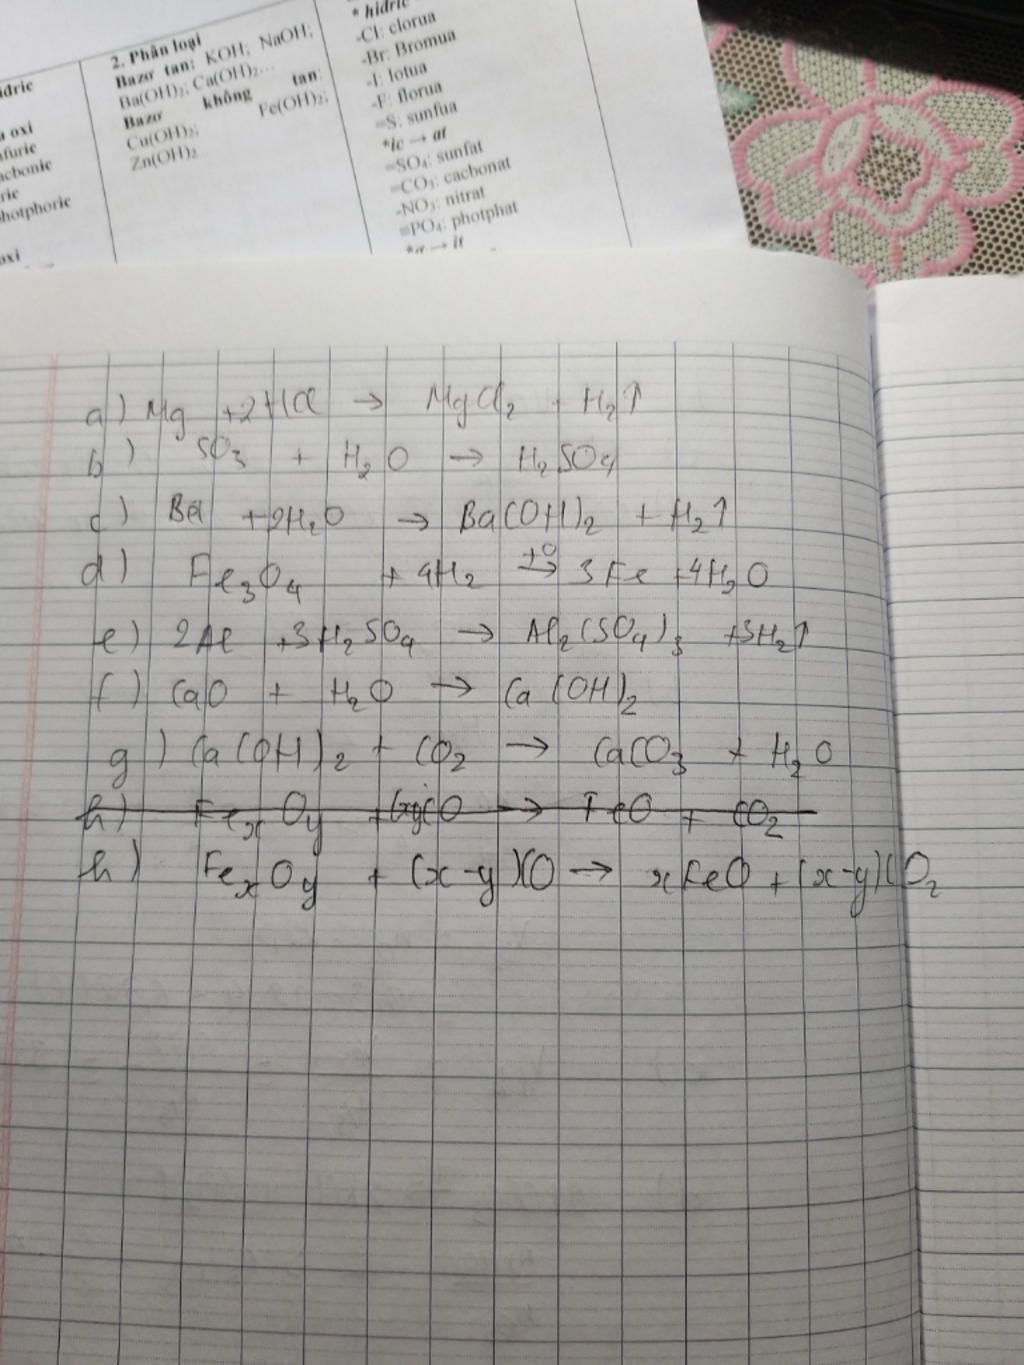 2. Phân loại
Bazơ tan: KOH; NaOH;
Ba(OH)₂; Ca(OH)₂...
Bazơ không tan:
Cu(OH)₂; Fe(OH)₂;
Zn(OH)₂
* hidric
-Cl: clorua
-Br: Bromua
-I: Iotua
-F: florua
=S: sunfua
*ic → at
=SO₄: sunfat
=CO₃: cacbonat
-NO₃: nitrat
≡PO₄: photphat
a) Mg + 2HCl → MgCl₂ + H₂↑
b) SO₃ + H₂O → H₂SO₄
c) Ba + 2H₂O → Ba(OH)₂ + H₂↑
d) Fe₃O₄ + 4H₂ →(t°) 3Fe + 4H₂O
e) 2Al + 3H₂SO₄ → Al₂(SO₄)₃ + 3H₂↑
f) CaO + H₂O → Ca(OH)₂
g) Ca(OH)₂ + CO₂ → CaCO₃ + H₂O
h) FeₓOy + CO → FeO + CO₂
h) FeₓOy + (x-y)CO → xFeO + (x-y)CO₂